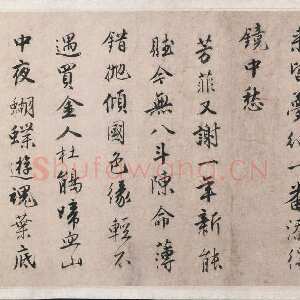 夢 一番流
鏡中愁
芳菲又謝一年新能
賦今無八斗陳命薄
錯拋傾國色緣輕不
遇買金人杜鵑啼血山
中夜蝴蝶遊魂葉底
Shufawang.CN